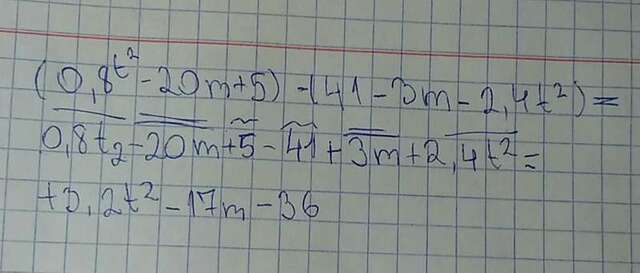 (0,8t²-20m+5)-(41-3m-2,4t²)=
0,8t₂-20m+5-41+3m+2,4t²=
+3,2t²-17m-36